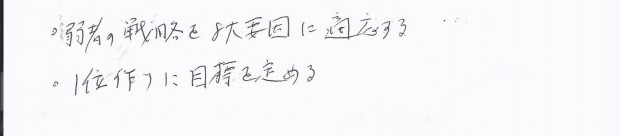 。弱者の戦略を8大要因に適応する
。1位作りに目標を定める